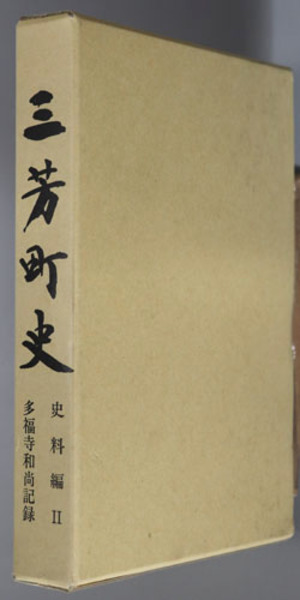 三芳町史
史料編 II
多福寺和尚記録